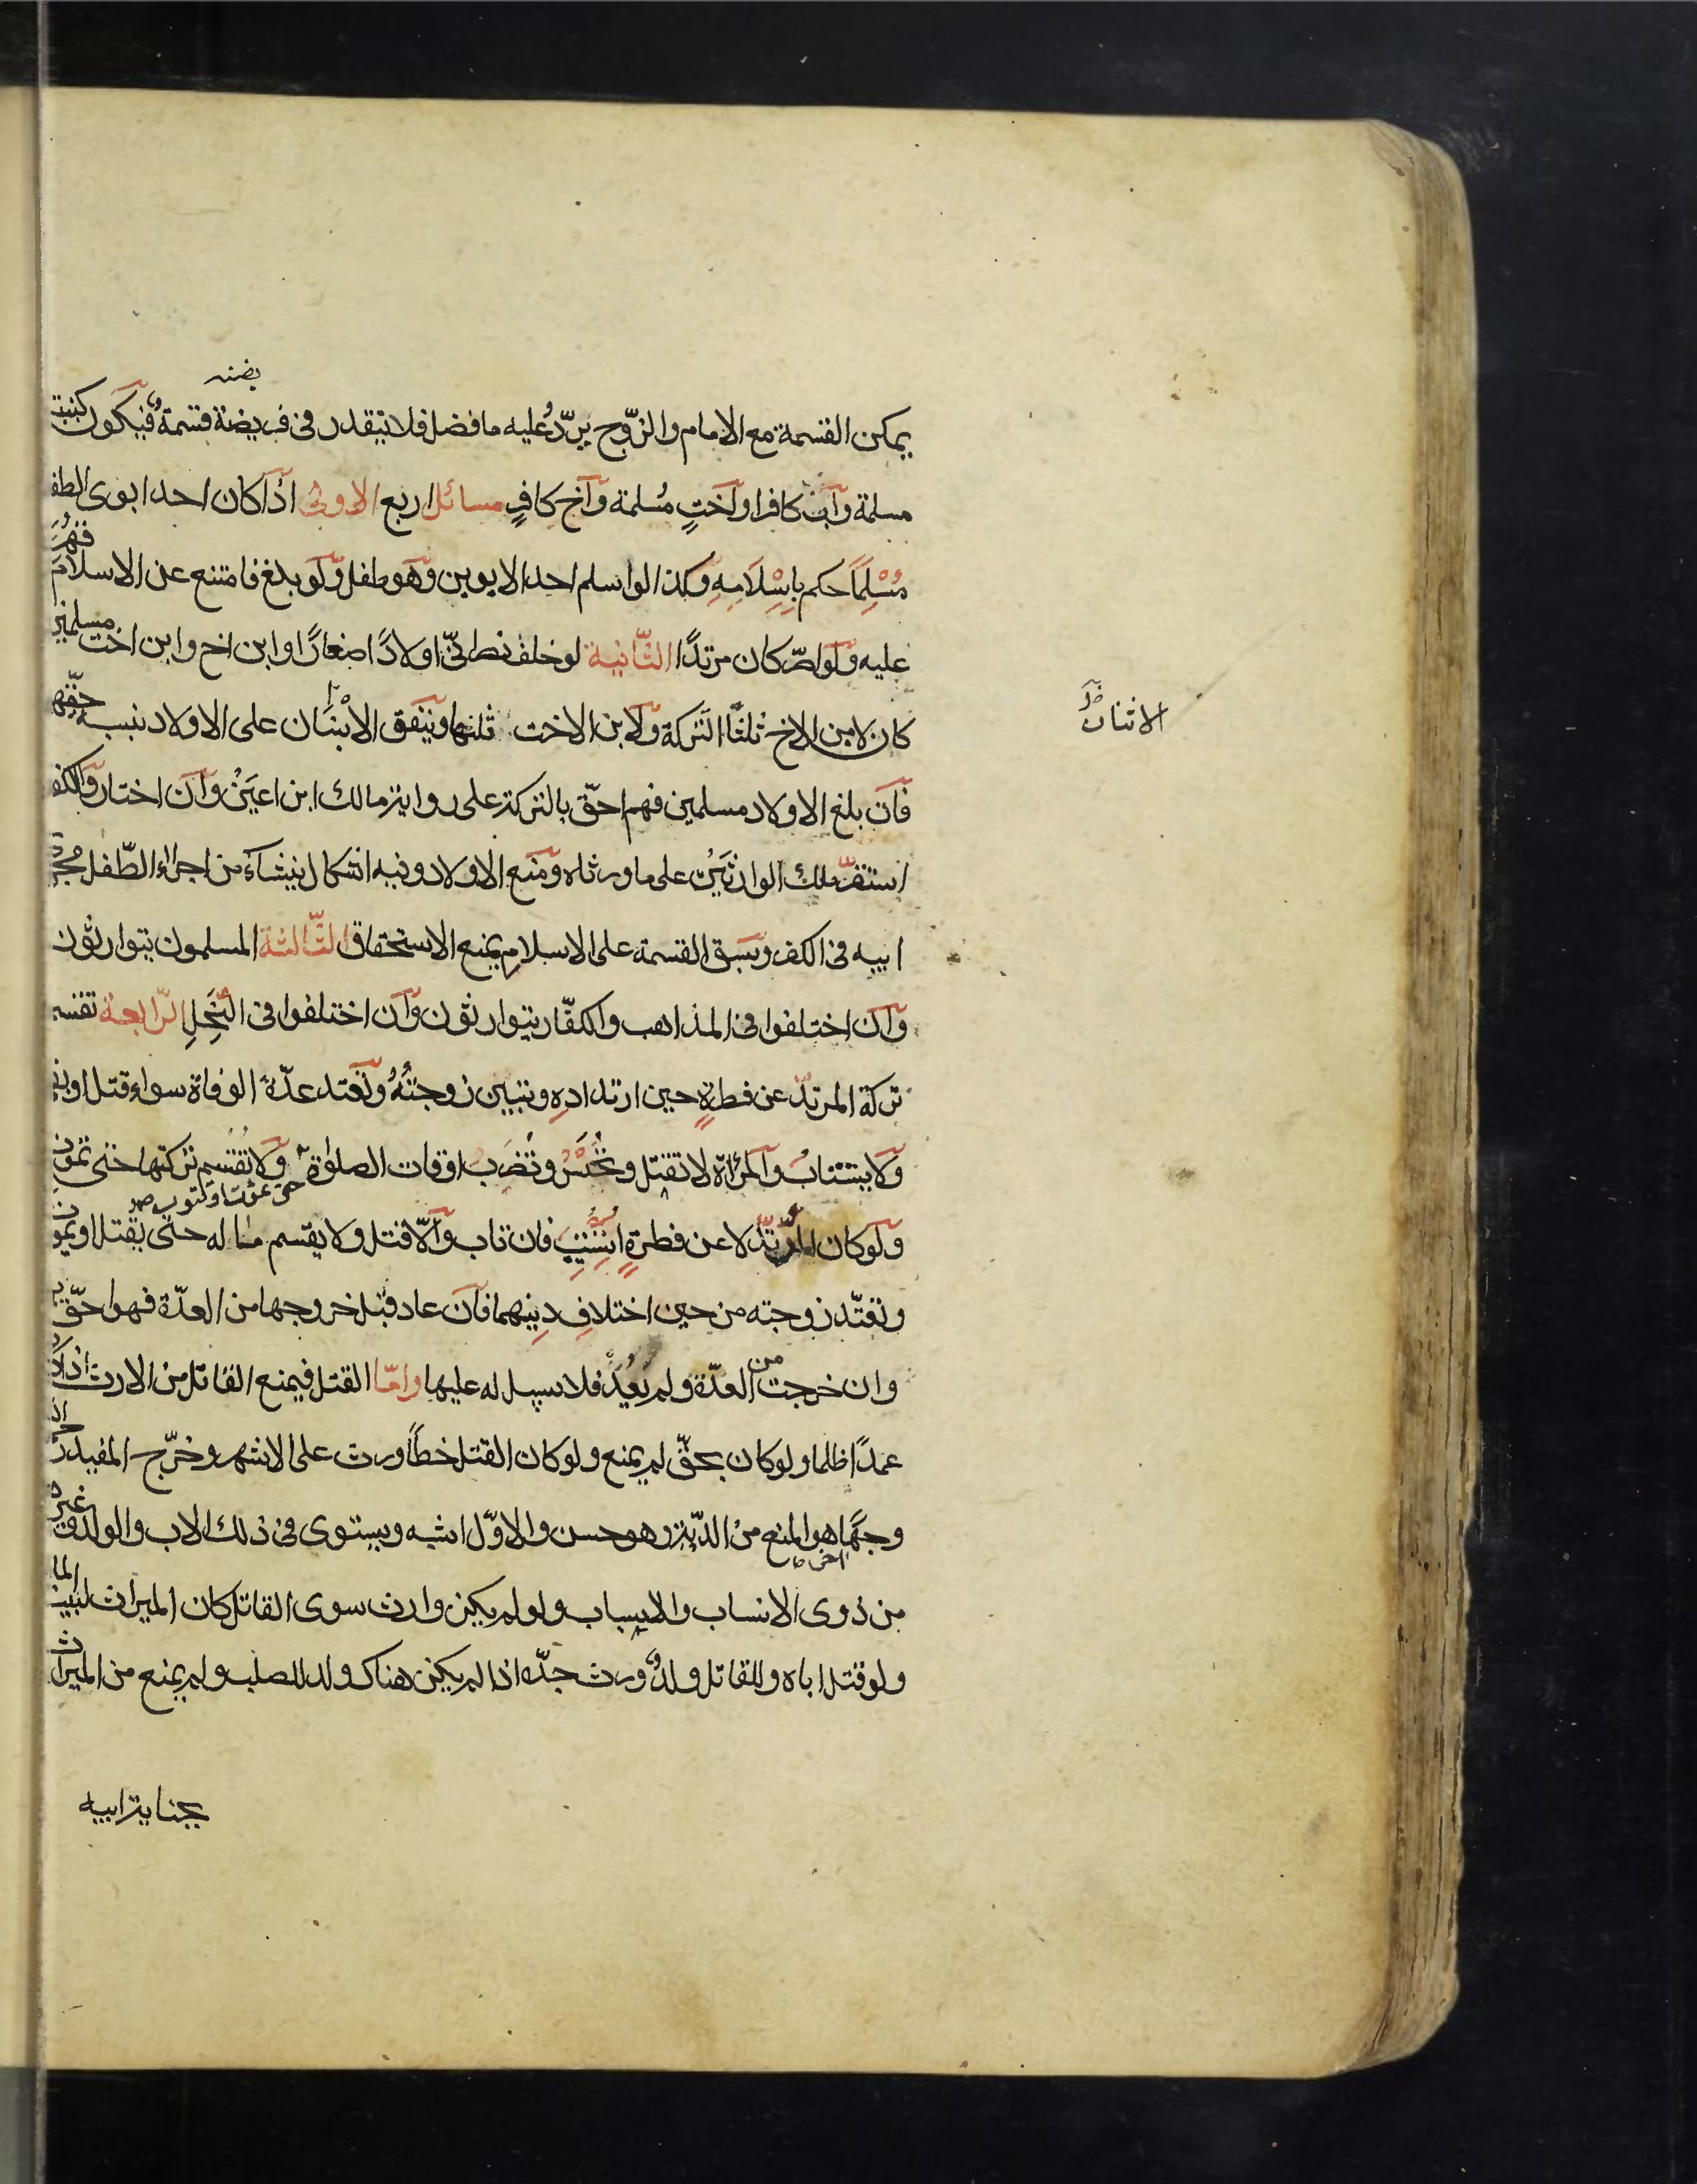 يمكن القسمة مع الامام والزّوج يردّ عليه ما فضل فلا يتقدر في فريضة قسمة فيكون كبنت
مسلمة وابن كافر او اختٍ مُسلمة واخ كافرٍ مسائل اربع الاولى اذا كان احد ابوى الطفل
مُسْلِمًا حكم بِاِسْلَامِهِ وكذا لو اسلم احد الابوين وهو طفل ولو بلغ فامتنع عن الاسلام قُهِرَ
عليه ولو اصرّ كان مرتدًا الثّانية لو خلف نصرانيّ اولادًا صغارًا وابن اخ وابن اخت مسلمين
كان لابن الاخ ثلثا التركة ولابن الاخت ثلثها وينفق الابنان على الاولاد بنسبه حقّهما
الاثنان
فان بلغ الاولاد مسلمين فهم احقّ بالتركة على رواية مالك ابن اعين وان اختاروا الكفر
استقرّ ملك الوارثَيْن على ما ورثاه ومنع الاولاد وفيه اشكال ينشاء من اجراء الطّفل مجرى
ابيه في الكفر وسبق القسمة على الاسلام يمنع الاستحقاق الثّالثة المسلمون يتوارثون
وان اختلفوا في المذاهب والكفّار يتوارثون وان اختلفوا في النِّحَلِ الرّابعة تقسم
تركة المرتدّ عن فطرةٍ حين ارتدادِهِ وتبين زوجتُهُ وتعتد عدّة الوفاة سواء قتل او بقى
ولا يستتاب والمرأة لا تقتل وتُحْبَسُ وتُضْرَبُ اوقات الصلوٰة ولا تُقْسَم تركتها حتى تموت
حتى تموت او تتوب
ولو كان المرتدّ لا عن فطرةٍ اسْتُتِيبَ فان تاب والّا قتل ولا يقسم ماله حتى يقتل او يموت
وتعتدّ زوجته من حين اختلافِ دِينِهما فان عاد قبل خروجها من العدّة فهو احقّ بها
وان خرجت من العدّة ولم يَعُدْ فلا سبيل له عليها وامّا القتل فيمنع القاتل من الارث اذا كان
عمدًا ظلما ولو كان بحقّ لم يمنع ولو كان القتل خطأً ورث على الاشهر وخرّج المفيد ره
وجهًا اخر هو المنع من الدّية وهو حسن والاوّل اشبه ويستوى في ذلك الاب والولد وغيرهما
من ذوى الانساب والاسباب ولو لم يكن وارث سوى القاتل كان الميراث لبيت المال
ولو قتل اباه وللقاتل ولدٌ ورث جدّه اذا لم يكن هناك ولد للصلب ولم يمنع من الميراث
بجناية ابيه